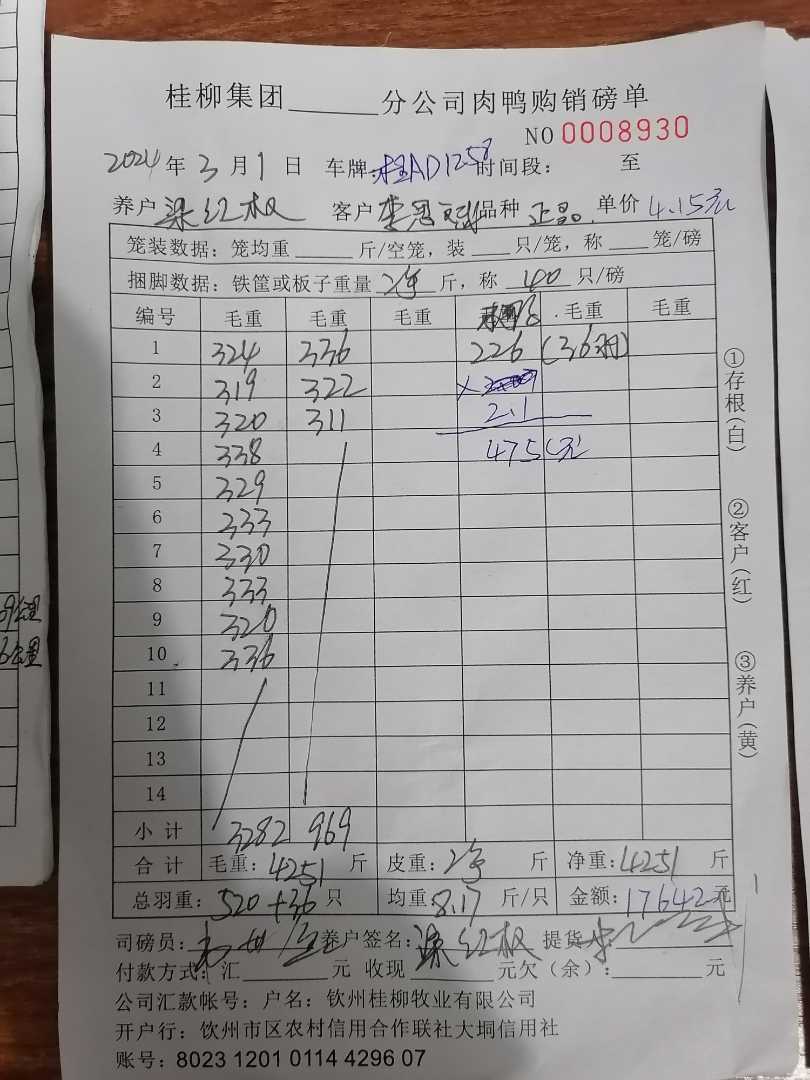 桂柳集团______分公司肉鸭购销磅单
NO 0008930
2024 年 3 月 1 日 车牌:桂AD1258 时间段: 至
养户 梁红权 客户 李 品种 正品. 单价 4.15元
笼装数据:笼均重____斤/空笼,装___只/笼,称___笼/磅
捆脚数据:铁筐或板子重量 净 斤,称 40 只/磅
编号 毛重 毛重 毛重 毛重 毛重
1 324 336 226 (36羽)
2 319 322 ×
3 320 311 2.1
4 338 475元
5 329
6 333
7 330
8 333
9 320
10 336
11
12
13
14
小计 3282 969
合计 毛重:4251 斤 皮重:净 斤 净重:4251 斤
总羽重:520+36 只 均重:8.17 斤/只 金额:17642元
司磅员: 养户签名:梁红权 提货:
付款方式:汇______元 收现______元欠(余):______元
公司汇款帐号:户名:钦州桂柳牧业有限公司
开户行:钦州市区农村信用合作联社大垌信用社
账号:8023 1201 0114 4296 07
①存根(白)
②客户(红)
③养户(黄)
9公里
6公里